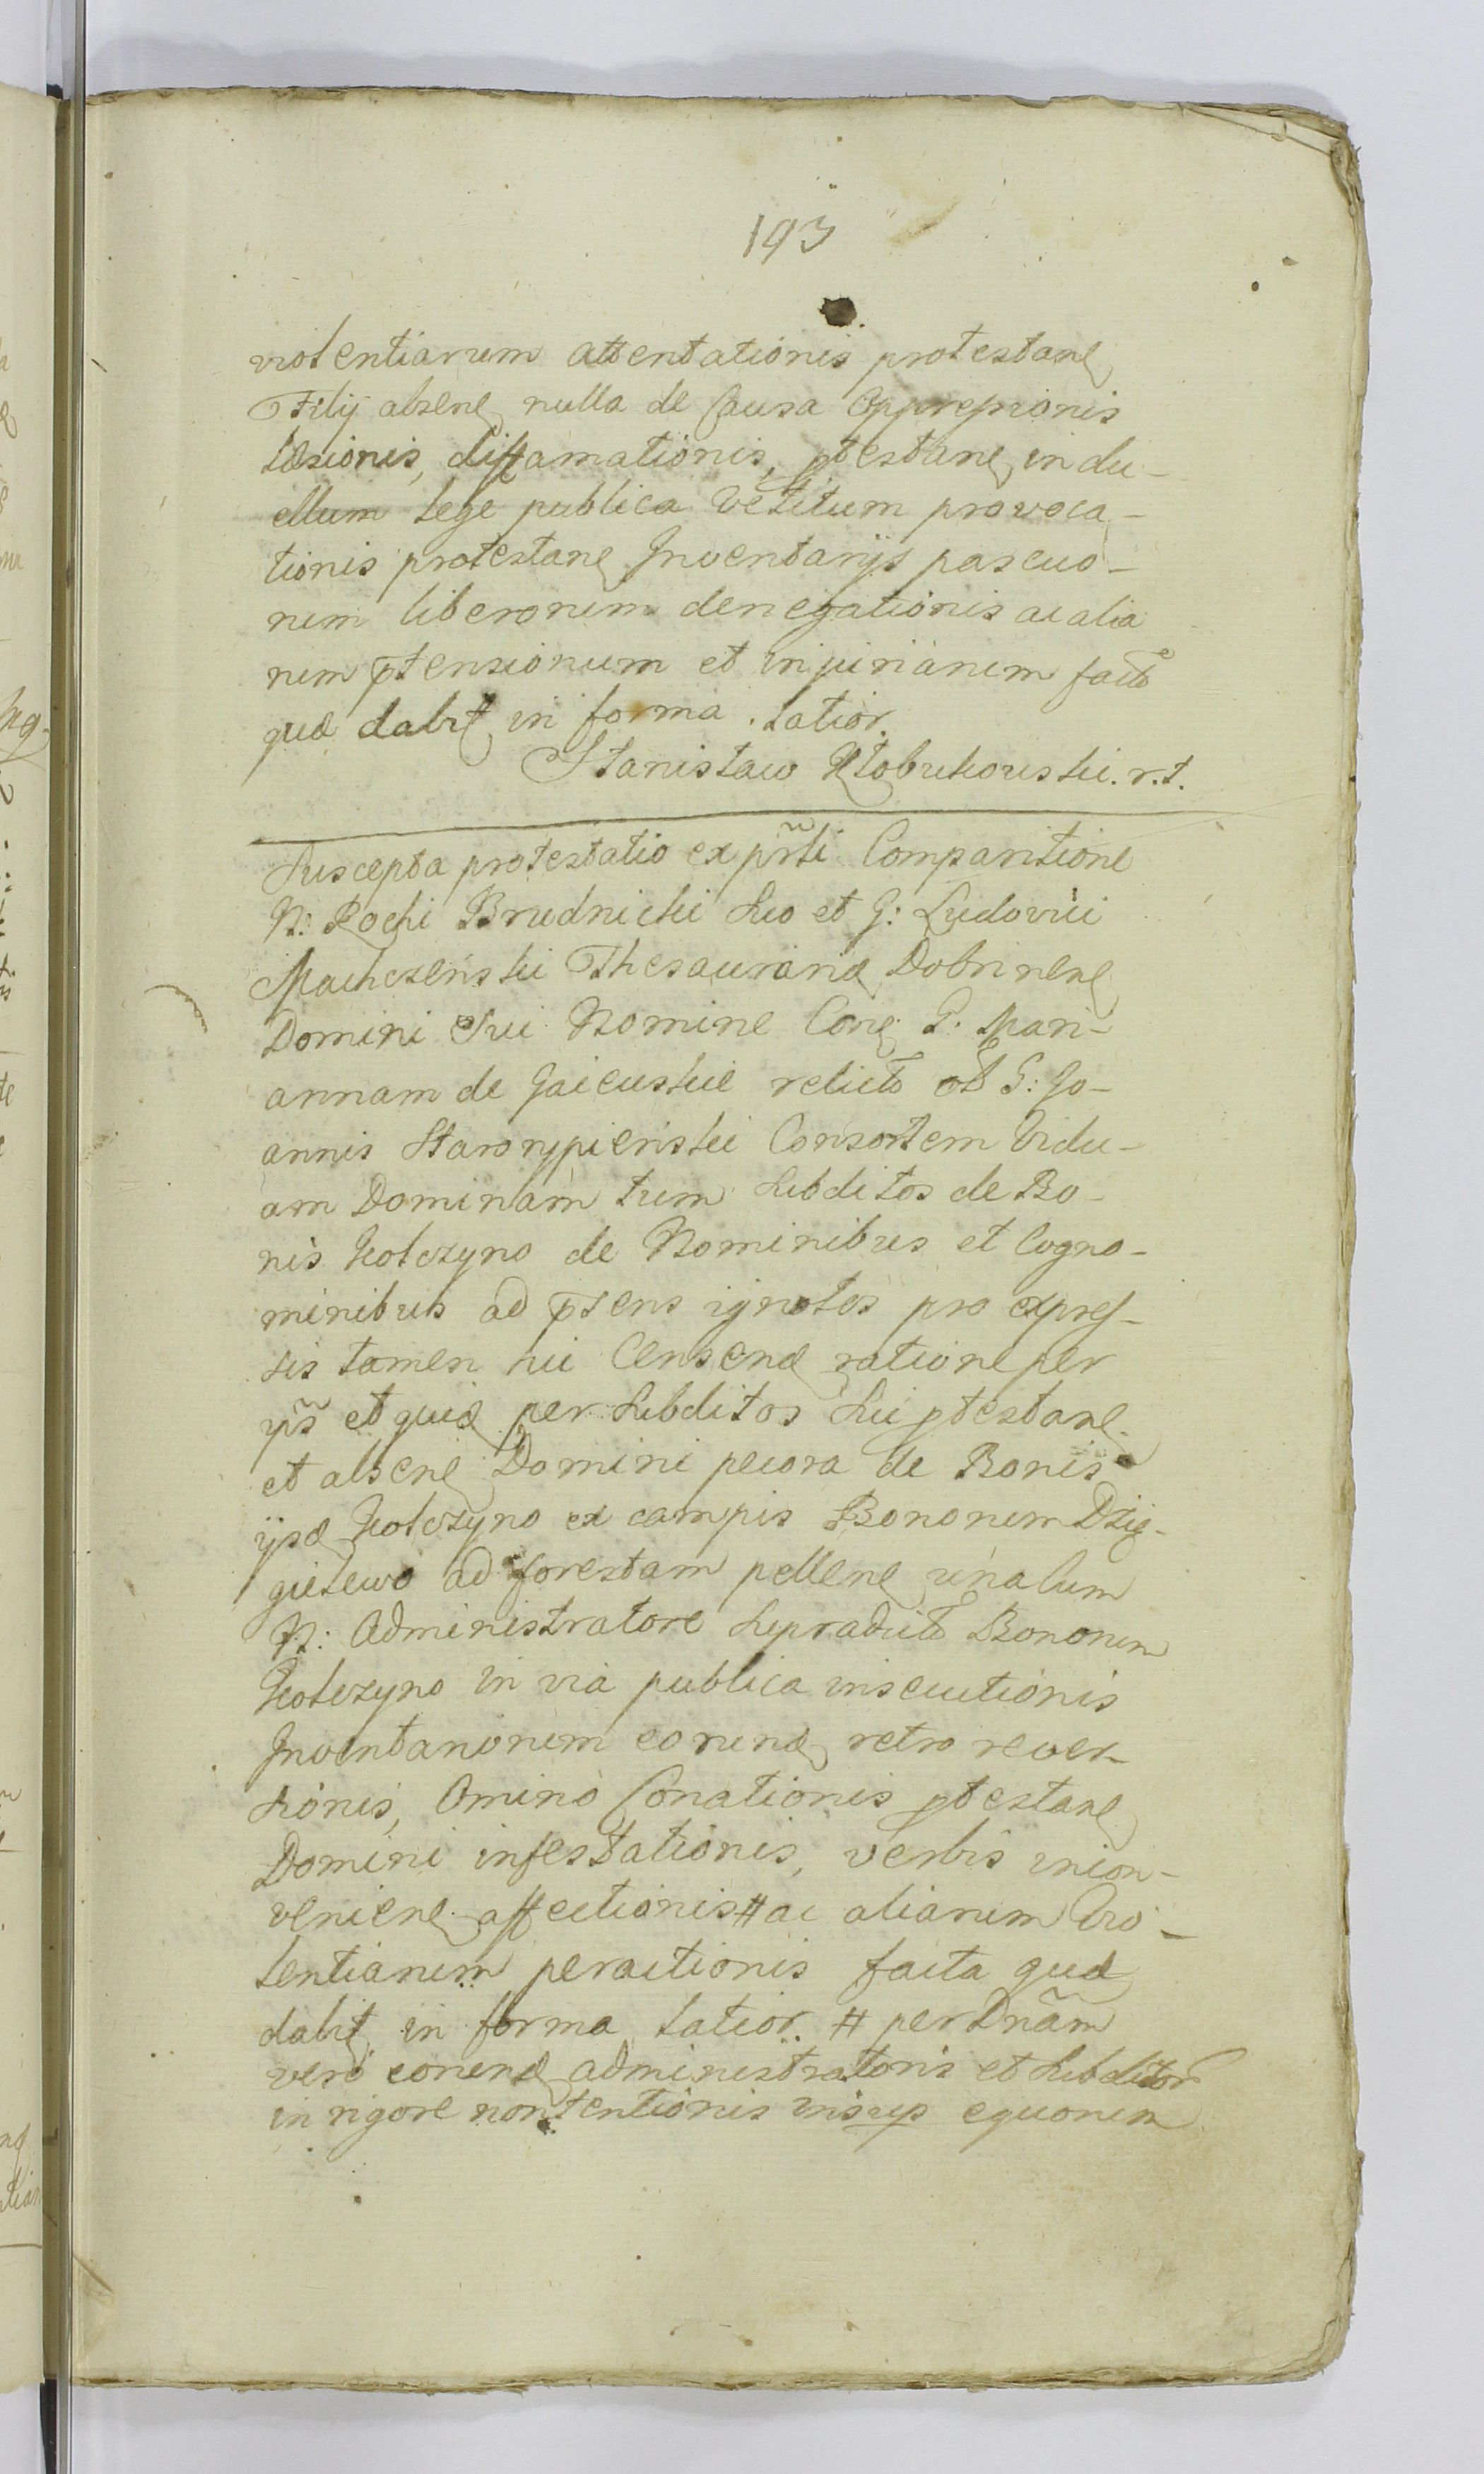 193
violentiarum attentationis protestane
Filij absene nulla de Causa Oppressionis
Læsionis, diffamationis, ptestane in du-
ellum Lege publica Vetitum provoca-
tionis protestane Inventarijs pascuo-
rum liberorum denegationis ac alia
rum ptensionum et injuriarum facta
quæ dabit in forma latior.
Stanisław Kłobukowski. r.t.
Suscepta protestatio ex pñti Comparitione
N: Rochi Brudnicki Suo et G: Ludovici
Machczeński Thesaurariæ Dobrinene
Domini Sui Nomine Cone G: Mari-
annam de Gaiewskie relicto olt G: Jo-
annis Starorypienski Consortem Vidu-
am Dominam tum Subditos de Bo-
nis Kotczyno de Nominibus et Cogno-
minibus ad ptsens ignotos pro expres-
sis tamen hic Censend ratione per
ipsõs et quid per Subditos Sui ptestane
et absene Domini pecora de Bonis
ijsd Kotczyno ex campis Bonorum Dzię-
gielewo ad forestam pellene una Cum
N: Administratore Supradicto Bonorum
Kotczyno in via publica insecutionis
Inventariorum eorund retro rever-
sionis, Omino Conationis ptestane
Domini infestationis, verbis incon-
veniene affectionis # ac aliarum Vio-
lentiarum peractionis facta quæ
dabit in forma latior. # per Dnãm
vero eorund administratoris et Subditor
in rigore non tentionis insup equorum